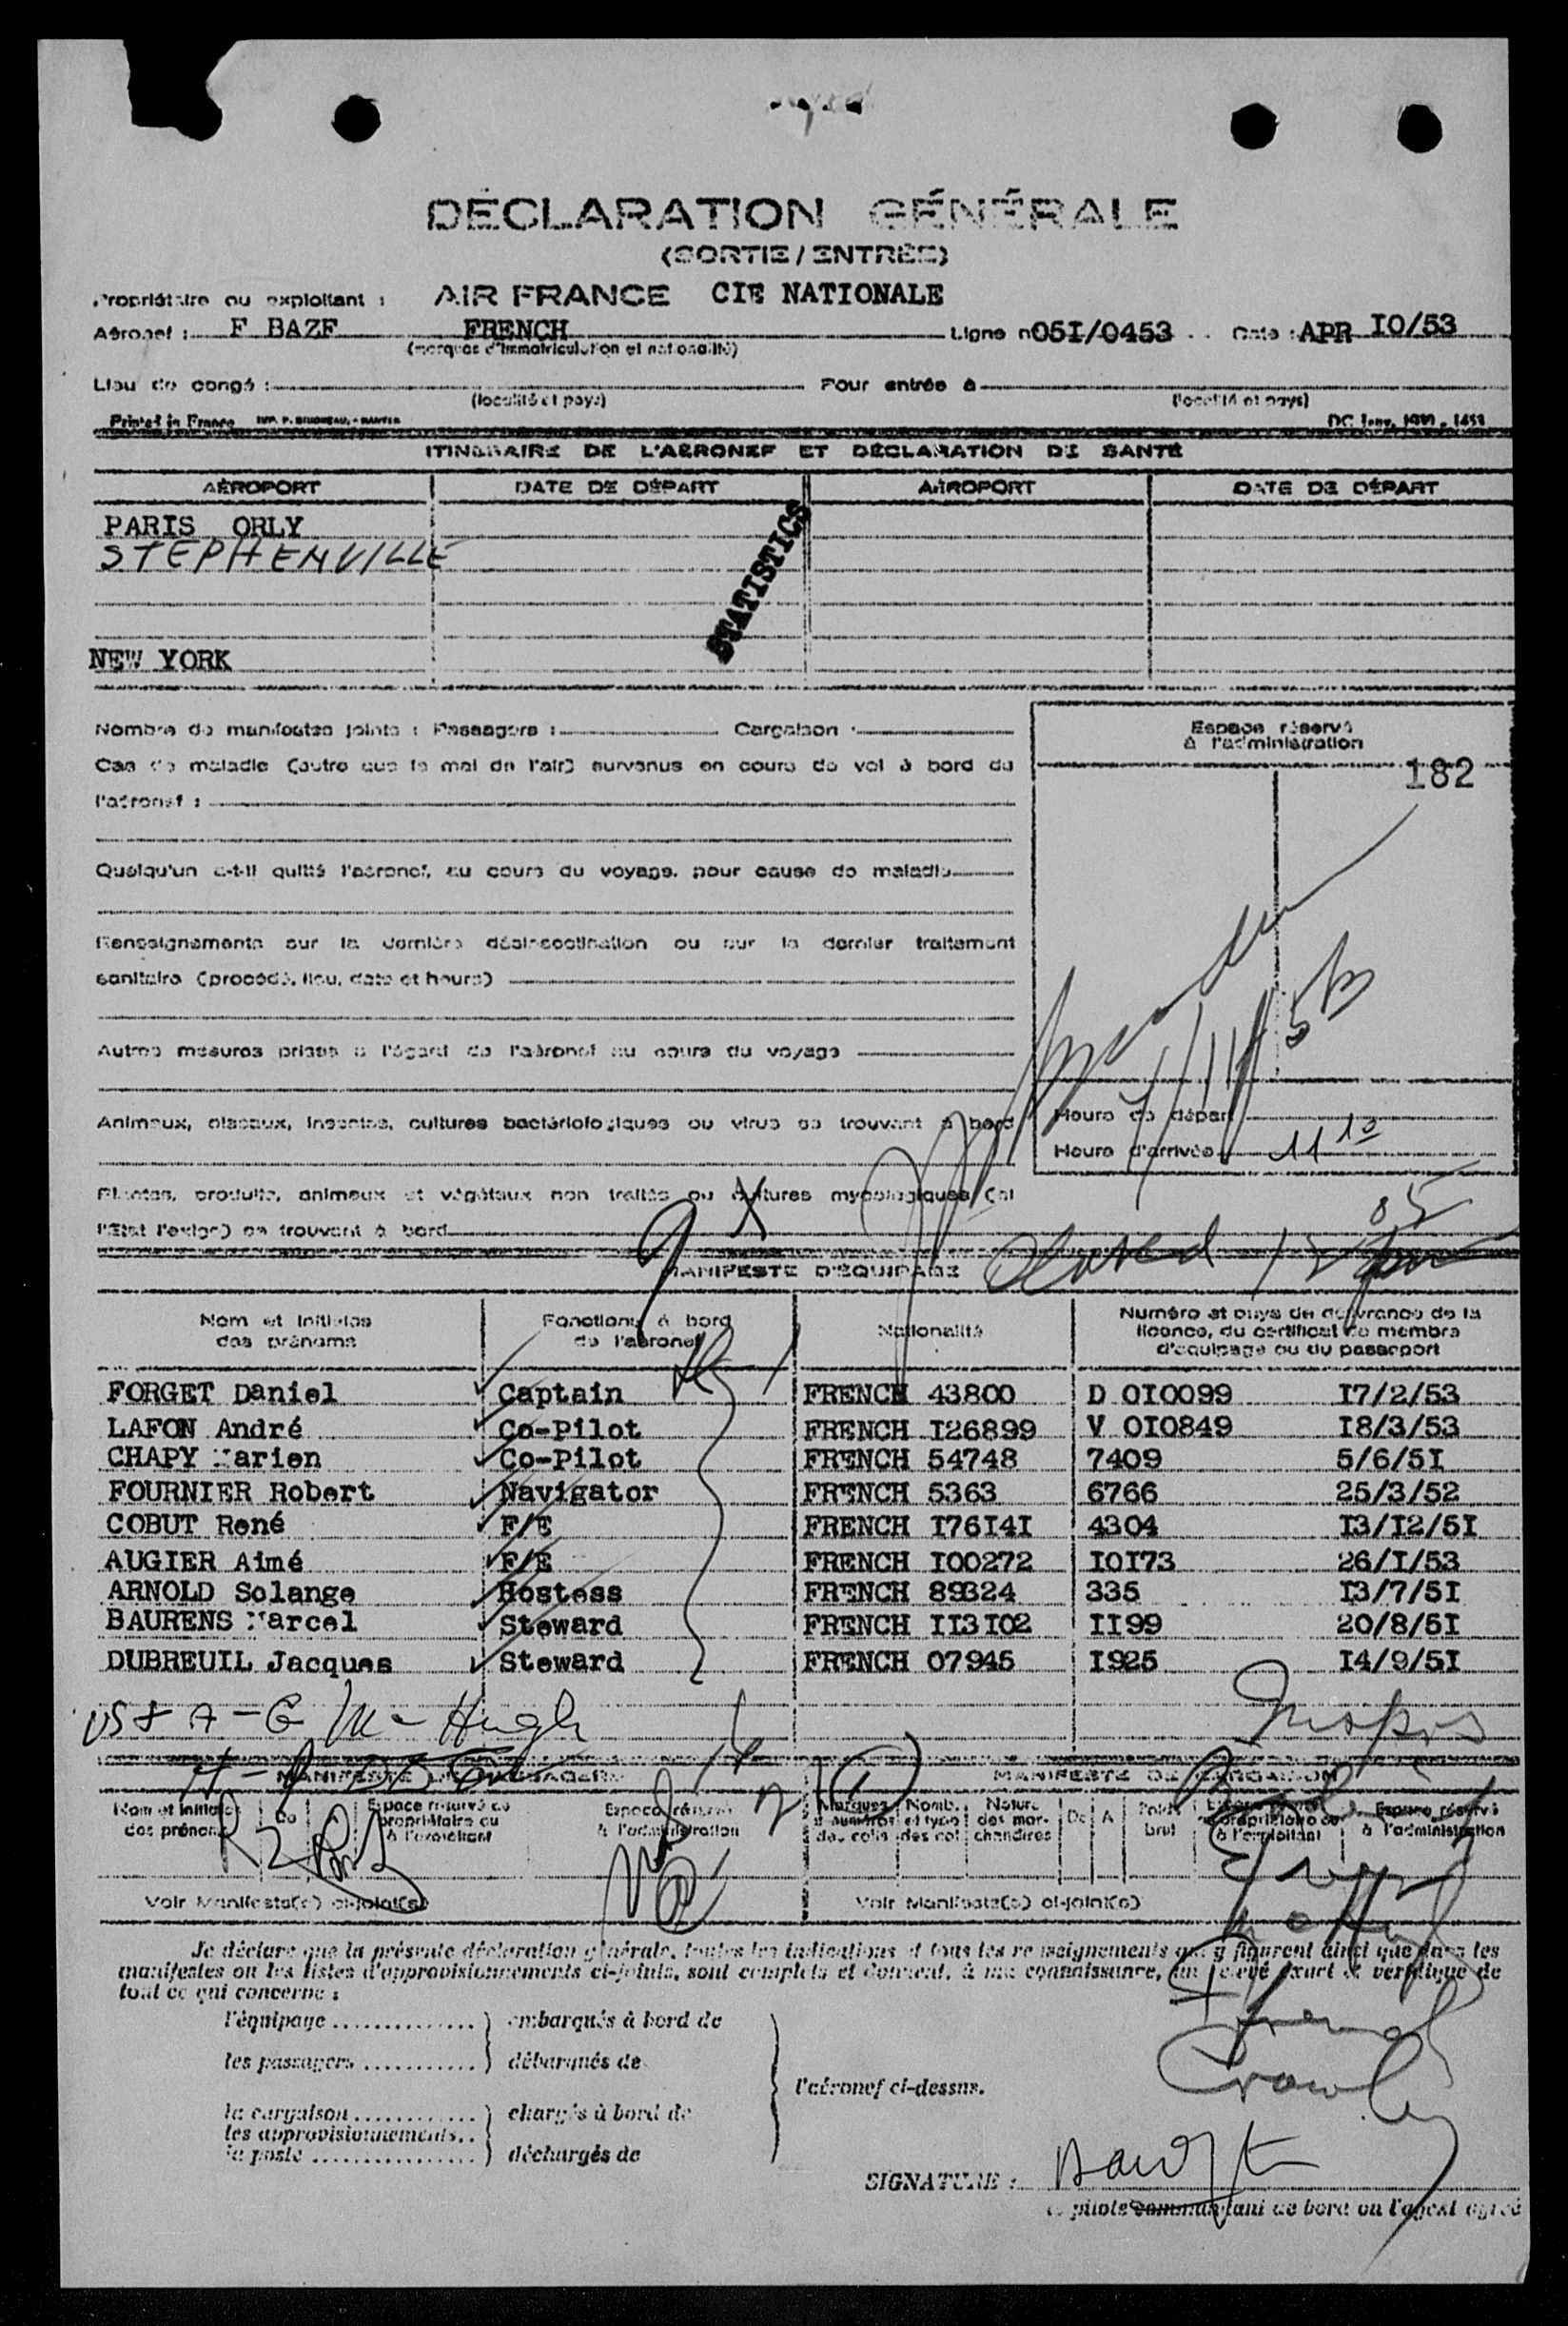 DÉCLARATION GÉNÉRALE
(SORTIE / ENTRÉE)
Propriétaire ou exploitant : AIR FRANCE CIE NATIONALE
Aéronef : F BAZF FRENCH Ligne n° 051/0453 Date : APR I0/53
(marques d'immatriculation et nationalité)
Lieu de congé : Pour entrée à
(localité et pays) (localité et pays)
Printed in France
ITINÉRAIRE DE L'AÉRONEF ET DÉCLARATION DE SANTÉ
AÉROPORT DATE DE DÉPART AÉROPORT DATE DE DÉPART
PARIS ORLY
STEPHENVILLE
STATISTICS
NEW YORK
Nombre de manifestes joints : Passagers : Cargaison :
Espace réservé
à l'administration
182
Cas de maladie (autre que le mal de l'air) survenus en cours de vol à bord de
l'aéronef :
Quelqu'un a-t-il quitté l'aéronef, au cours du voyage, pour cause de maladie
Renseignements sur la dernière désinsectisation ou sur le dernier traitement
sanitaire (procédé, lieu, date et heure)
Autres mesures prises à l'égard de l'aéronef au cours du voyage
Animaux, oiseaux, insectes, cultures bactériologiques ou virus se trouvant à bord
Heure de départ
Heure d'arrivée 11 10
Plantes, produits, animaux et végétaux non traités ou cultures mycologiques (si
l'Etat l'exige) se trouvant à bord
MANIFESTE D'ÉQUIPAGE
Nom et initiales des prénoms Fonctions à bord de l'aéronef Nationalité Numéro et pays de délivrance de la licence, du certificat de membre d'équipage ou du passeport
FORGET Daniel Captain FRENCH 43800 D 0I0099 I7/2/53
LAFON André Co-Pilot FRENCH I26899 V 0I0849 I8/3/53
CHAPY Marien Co-Pilot FRENCH 54748 7409 5/6/5I
FOURNIER Robert Navigator FRENCH 5363 6766 25/3/52
COBUT René F/E FRENCH I76I4I 4304 I3/I2/5I
AUGIER Aimé F/E FRENCH I00272 I0I73 26/I/53
ARNOLD Solange Hostess FRENCH 89324 335 I3/7/5I
BAURENS Marcel Steward FRENCH II3I02 II99 20/8/5I
DUBREUIL Jacques Steward FRENCH 07945 I925 I4/9/5I
MANIFESTE DE PASSAGERS MANIFESTE DE CARGAISON
Nom et initiales des prénoms De Espace réservé au propriétaire ou à l'exploitant Espace réservé à l'administration Marques et numéros des colis Nomb. et type des col. Nature des marchandises De A Poids brut Espace réservé à l'administration
Voir Manifeste(s) ci-joint(s) Voir Manifeste(s) ci-joint(s)
Je déclare que la présente déclaration générale, toutes les indications et tous les renseignements qui y figurent ainsi que dans les
manifestes ou les listes d'approvisionnements ci-joints, sont complets et donnent, à ma connaissance, un relevé exact et véridique de
tout ce qui concerne :
l'équipage .............. embarqués à bord de
les passagers ........... débarqués de
l'aéronef ci-dessus.
la cargaison ............ chargés à bord de
les approvisionnements..
la poste ................ déchargés de
SIGNATURE :
le pilote commandant de bord ou l'agent agréé